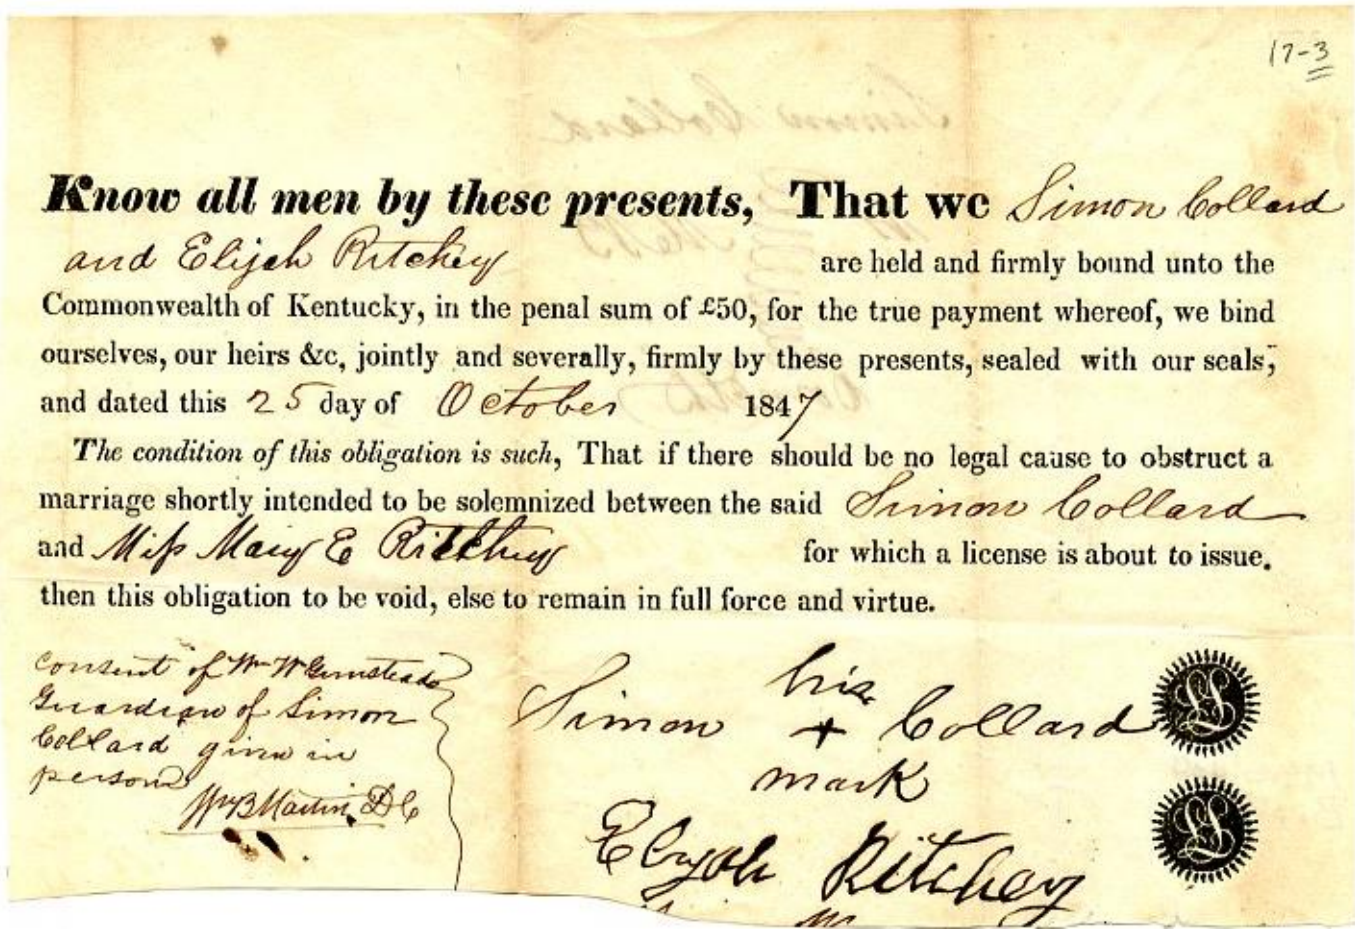 17-3
Know all men by these presents, That we Simon Collard
and Elijah Ritchey are held and firmly bound unto the
Commonwealth of Kentucky, in the penal sum of £50, for the true payment whereof, we bind
ourselves, our heirs &c, jointly and severally, firmly by these presents, sealed with our seals,
and dated this 25 day of October 1847
The condition of this obligation is such, That if there should be no legal cause to obstruct a
marriage shortly intended to be solemnized between the said Simon Collard
and Miss Mary E Ritchey for which a license is about to issue.
then this obligation to be void, else to remain in full force and virtue.
consent of Wm W
Guardian of Simon
Collard given in
person
Wm B Martin, D C
Simon his + mark Collard
LS
Elijah Ritchey
LS